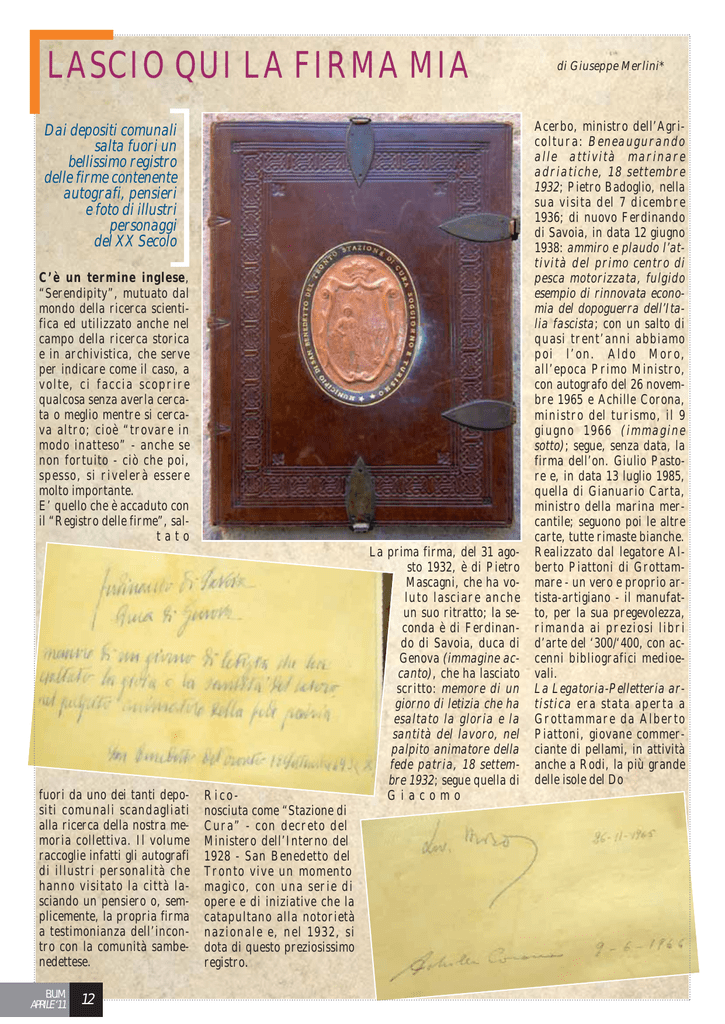 LASCIO QUI LA FIRMA MIA
di Giuseppe Merlini*
Dai depositi comunali
salta fuori un
bellissimo registro
delle firme contenente
autografi, pensieri
e foto di illustri
personaggi
del XX Secolo
C'è un termine inglese,
“Serendipity”, mutuato dal
mondo della ricerca scienti-
fica ed utilizzato anche nel
campo della ricerca storica
e in archivistica, che serve
per indicare come il caso, a
volte, ci faccia scoprire
qualcosa senza averla cerca-
ta o meglio mentre si cerca-
va altro; cioè “trovare in
modo inatteso” - anche se
non fortuito - ciò che poi,
spesso, si rivelerà essere
molto importante.
E' quello che è accaduto con
il “Registro delle firme”, sal-
tato
fuori da uno dei tanti depo-
siti comunali scandagliati
alla ricerca della nostra me-
moria collettiva. Il volume
raccoglie infatti gli autografi
di illustri personalità che
hanno visitato la città la-
sciando un pensiero o, sem-
plicemente, la propria firma
a testimonianza dell'incon-
tro con la comunità sambe-
nedettese.
Rico-
nosciuta come “Stazione di
Cura” - con decreto del
Ministero dell'Interno del
1928 - San Benedetto del
Tronto vive un momento
magico, con una serie di
opere e di iniziative che la
catapultano alla notorietà
nazionale e, nel 1932, si
dota di questo preziosissimo
registro.
MUNICIPIO DI SAN BENEDETTO DEL TRONTO STAZIONE DI CURA SOGGIORNO E TURISMO
La prima firma, del 31 ago-
sto 1932, è di Pietro
Mascagni, che ha vo-
luto lasciare anche
un suo ritratto; la se-
conda è di Ferdinan-
do di Savoia, duca di
Genova (immagine ac-
canto), che ha lasciato
scritto: memore di un
giorno di letizia che ha
esaltato la gloria e la
santità del lavoro, nel
palpito animatore della
fede patria, 18 settem-
bre 1932; segue quella di
Giacomo
Acerbo, ministro dell'Agri-
coltura: Beneaugurando
alle attività marinare
adriatiche, 18 settembre
1932; Pietro Badoglio, nella
sua visita del 7 dicembre
1936; di nuovo Ferdinando
di Savoia, in data 12 giugno
1938: ammiro e plaudo l'at-
tività del primo centro di
pesca motorizzata, fulgido
esempio di rinnovata econo-
mia del dopoguerra dell'Ita-
lia fascista; con un salto di
quasi trent'anni abbiamo
poi l'on. Aldo Moro,
all'epoca Primo Ministro,
con autografo del 26 novem-
bre 1965 e Achille Corona,
ministro del turismo, il 9
giugno 1966 (immagine
sotto); segue, senza data, la
firma dell'on. Giulio Pasto-
re e, in data 13 luglio 1985,
quella di Gianuario Carta,
ministro della marina mer-
cantile; seguono poi le altre
carte, tutte rimaste bianche.
Realizzato dal legatore Al-
berto Piattoni di Grottam-
mare - un vero e proprio ar-
tista-artigiano - il manufat-
to, per la sua pregevolezza,
rimanda ai preziosi libri
d'arte del '300/'400, con ac-
cenni bibliografici medioe-
vali.
La Legatoria-Pelletteria ar-
tistica era stata aperta a
Grottammare da Alberto
Piattoni, giovane commer-
ciante di pellami, in attività
anche a Rodi, la più grande
delle isole del Do
Ferdinando di Savoia
Duca di Genova
memore di un giorno di letizia che ha
esaltato la gloria e la santità del lavoro
nel palpito animatore della fede patria
San Benedetto del Tronto 18 Settembre 1932
Moro
26-11-1965
Achille Corona
9-6-1966
BUM
APRILE'11
12